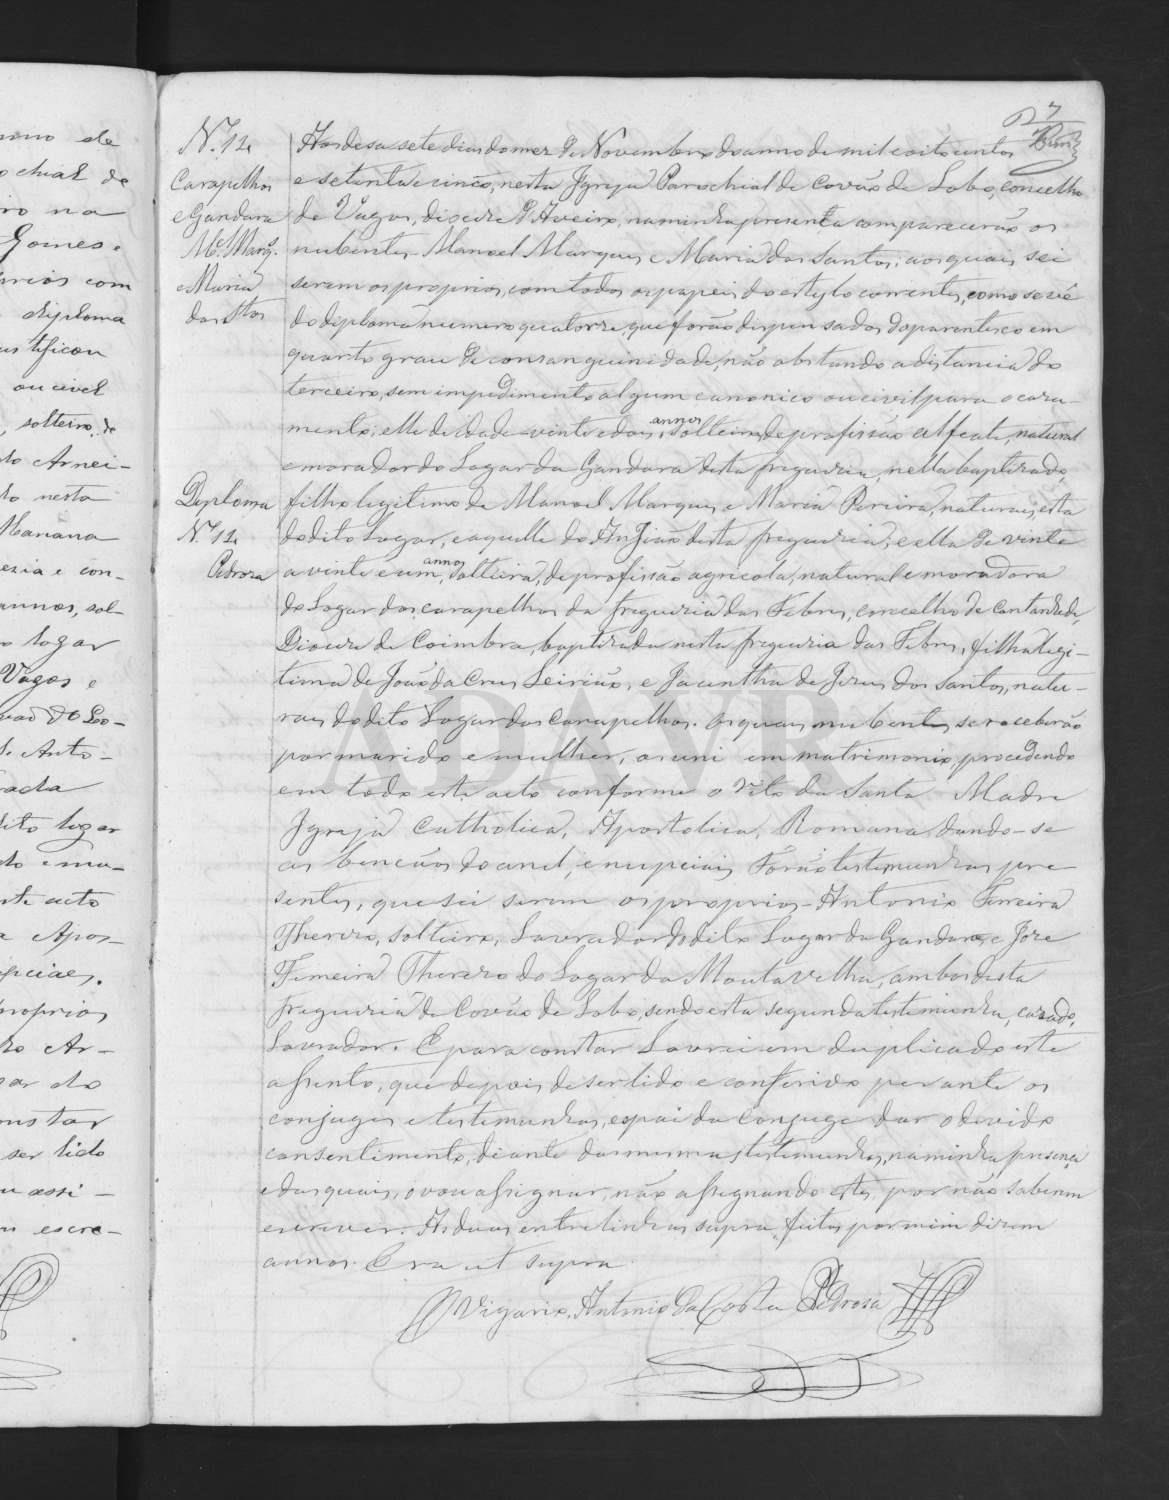 7
N.º 12
Carapelhos
e Gandara
M.el Marq.
e Maria
dos Stos
Aos desasete dias do mez de Novembro do anno de mil e oito centos
e setenta e cinco, nesta Igreja Parochial de Covão de Lobo, concelho
de Vagos, diocese d'Aveiro, na minha presença comparecerão os
nubentes Manoel Marques e Maria dos Santos, aos quais sei
serem os proprios, com todos os papeis do estylo correntes, como se vê
do diploma numero quatorze, que forão dispensados do parentesco em
quarto grau de consanguinidade, não obstando a distancia do
terceiro, sem impedimento algum canonico ou civil para o caza-
mento; elle de idade vinte e dois annos, solteiro, de profissão alfeate, natural
e morador do Logar da Gandara desta freguezia, nella baptizado,
Deploma
N.º 12
Pedroza
filho legitimo de Manoel Marques e Maria Pereira, naturais, esta
do dito Lugar, e aquelle do Anjeão desta freguezia; e ella de vinte
a vinte e um annos, solteira, de profissão agricola, natural e moradora
do Logar dos Carapelhos da freguezia das Febres, concelho de Cantanhede,
Diocese de Coimbra, baptizada nesta freguezia das Febres, filha legi-
tima de João da Cruz Leirião, e Jacintha de Jezus dos Santos, natu-
rais do dito Lugar dos Carapelhos. Os quais nubentes se receberão
por marido e mulher, os uni em matrimonio, procedendo
em todo este acto conforme o rito da Santa Madre
Igreja Catholica, Apostolica, Romana, dando-se
as bençãos do anel, e nupciais. Forão testemunhas pre
sentes, que sei serem os proprios - Antonio Ferreira
Therezo, solteiro, Lavrador do dito Lugar da Gandara, e Joze
Ferreira Therezo do Logar da Moutavelha, ambos desta
freguezia de Covão de Lobo, sendo esta segunda testemunha, cazado,
Lavrador. E para constar Lavrei em duplicado este
assento, que depois de ser lido e conferido perante os
conjuges e testemunhas, e o pai da conjuge dar o devido
consentimento, diante das mesmas testemunhas, na minha presença
e das quais, o vou assignar, não assignando estes, por não saberem
escrever. As duas entrelinhas supra, feitas por mim dizem
annos. Era ut supra.
O Vigario, Antonio da Costa Pedrosa
ADAVR